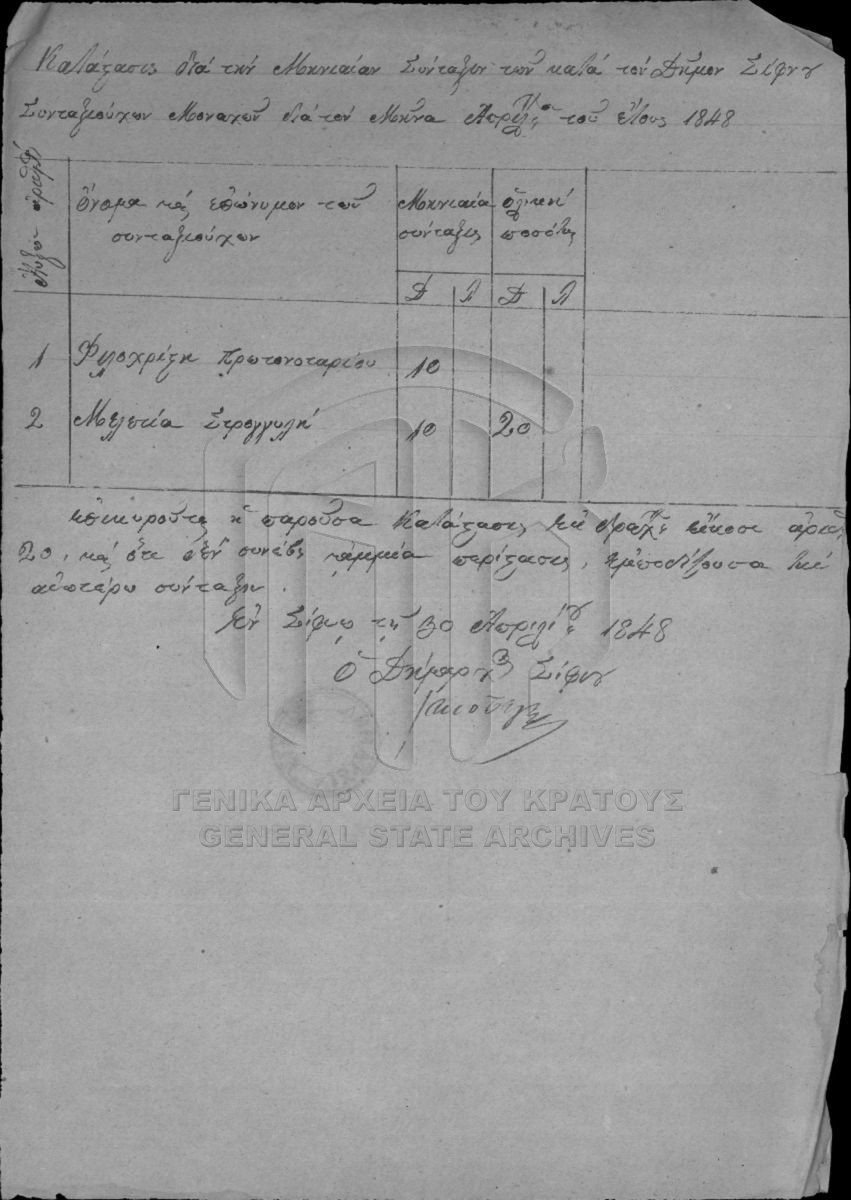 Κατάστασις διά την Μηνιαίαν Σύνταξιν των κατά τον Δήμον Σίφνου
Συνταξιούχων Μοναχών διά τον Μήνα Απρίλιον του έτους 1848
όνομα και επώνυμον των
συνταξιούχων
Μηνιαία
σύνταξις
ολική
ποσότης
Δ Λ Δ Λ
1 Φιλοχρίστη Πρωτονοταρίου 10
2 Μελετία Στρογγυλή 10 20
επικυρούται η παρούσα Κατάστασις διά δραχ. είκοσι αριθ.
20, και ότι δεν συνέβη καμμία περίστασις, εμποδίζουσα την
ανωτέρω σύνταξιν.
Εν Σίφνω τη 30 Απριλίου 1848
Ο Δήμαρχος Σίφνου
ΓΕΝΙΚΑ ΑΡΧΕΙΑ ΤΟΥ ΚΡΑΤΟΥΣ
GENERAL STATE ARCHIVES